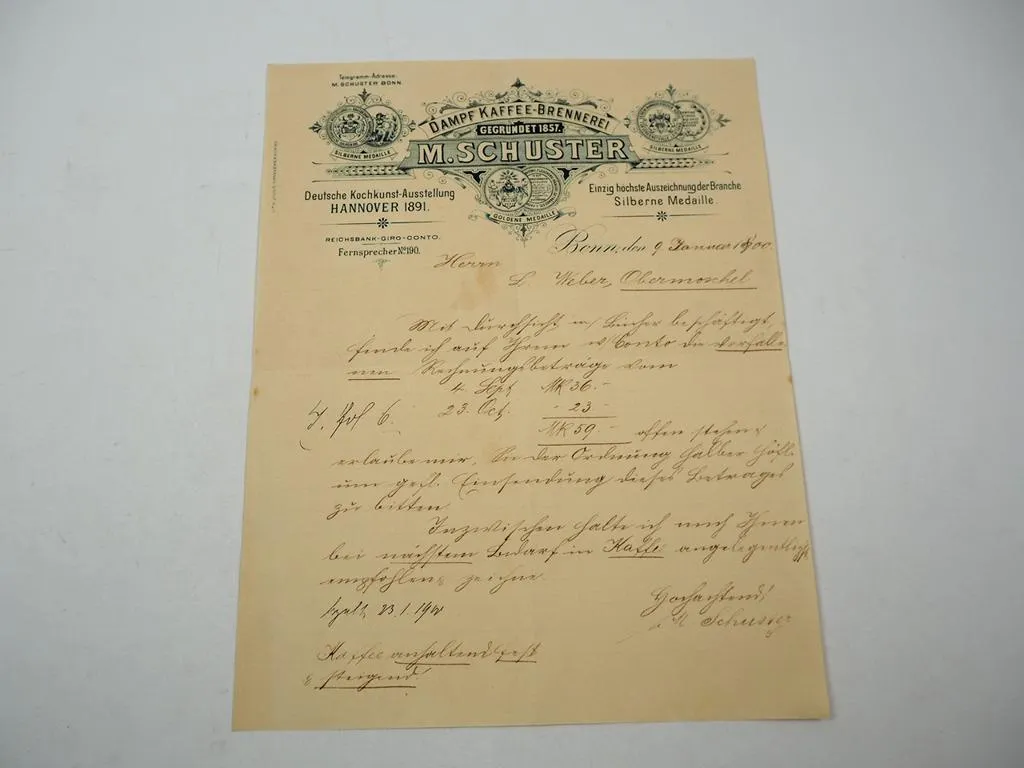 Telegramm-Adresse:
M. SCHUSTER BONN.
DAMPF KAFFEE-BRENNEREI
GEGRÜNDET 1857.
M. SCHUSTER
SILBERNE MEDAILLE
SILBERNE MEDAILLE
GOLDENE MEDAILLE
Deutsche Kochkunst-Ausstellung
HANNOVER 1891.
Einzig höchste Auszeichnung der Branche
Silberne Medaille.
REICHSBANK-GIRO-CONTO.
Fernsprecher No 190.
Bonn, den 9 Januar 1900.
Herrn
L. Weber, Obermoschel
Mit Durchsicht m/ Bücher beschäftigt,
finde ich auf Ihrem w Conto die verfalle-
nen Rechnungsbeträge vom
4. Sept MK 36.-
23. Oct. - 23 -
MK 59.- offen stehen &
erlaube mir, Sie der Ordnung halber höfl.
um gefl. Einsendung dieses Betrages
zu bitten.
Inzwischen halte ich mich Ihnen
bei nächstem Bedarf in Kaffee angelegentlichst
empfohlen & zeichne.
Hochachtend!
M Schuster
23.1.1900
Kaffee anhaltend fest
& steigend!